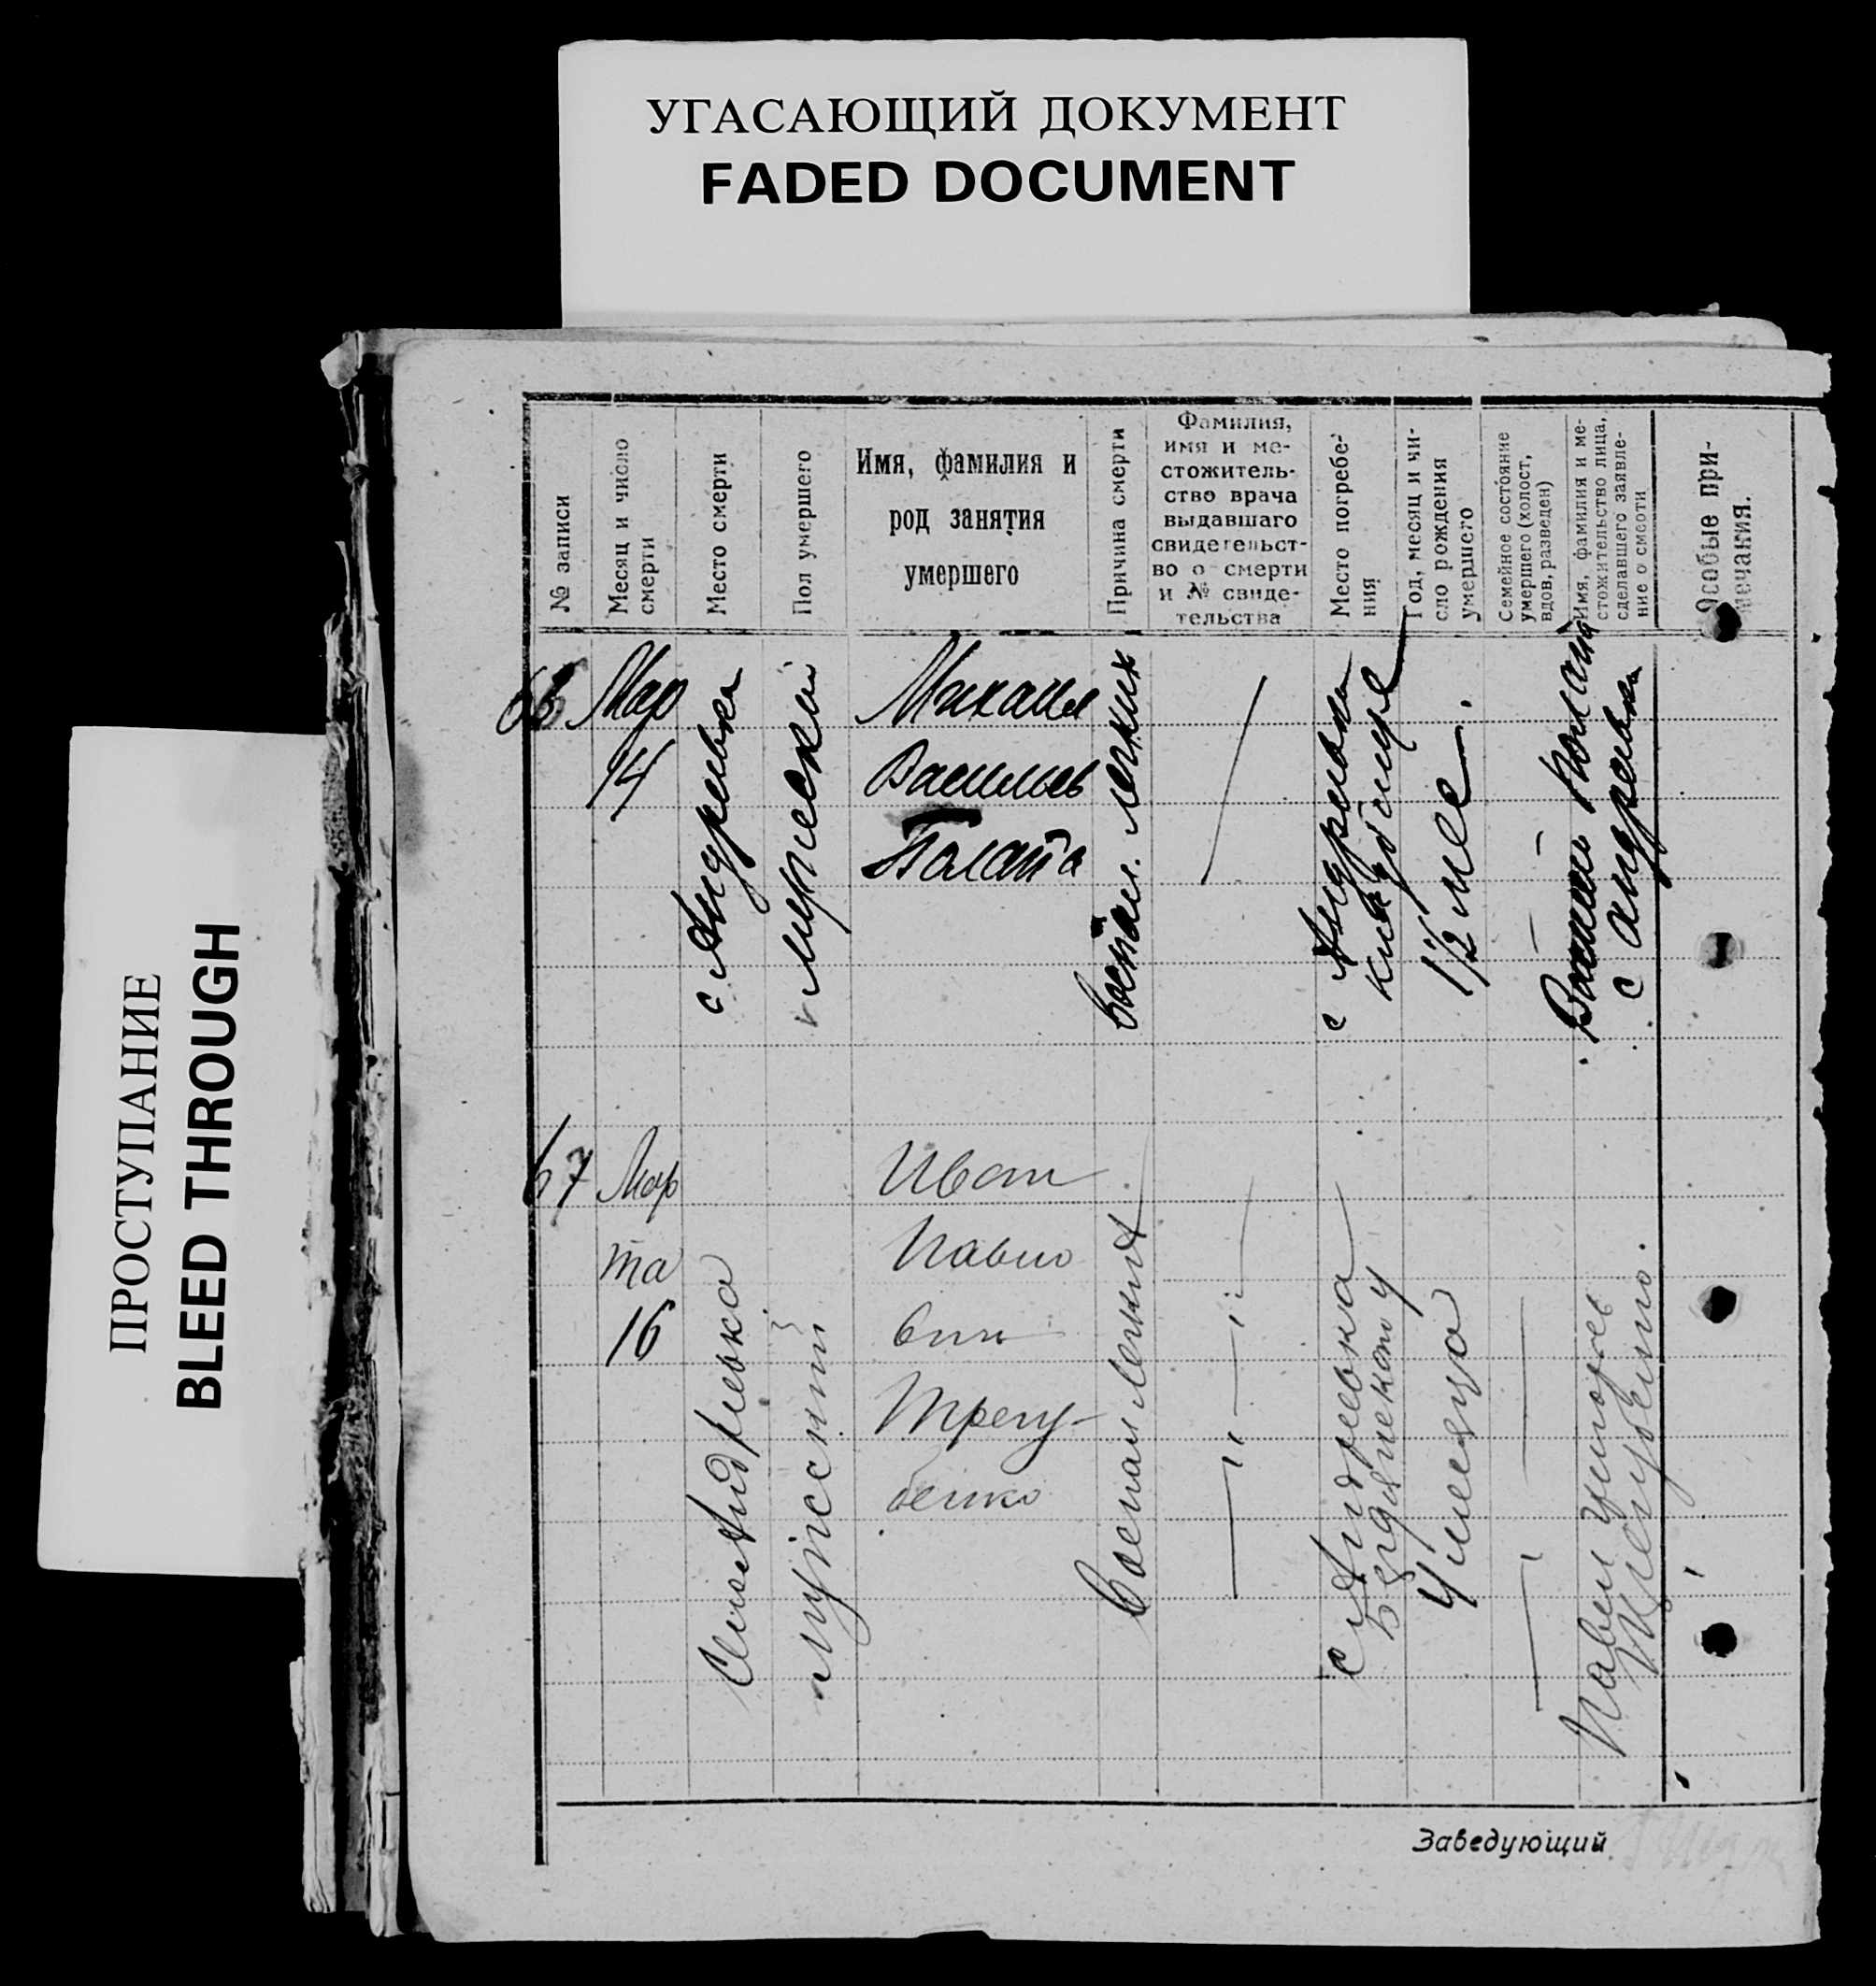 УГАСАЮЩИЙ ДОКУМЕНТ
FADED DOCUMENT
ПРОСТУПАНИЕ
BLEED THROUGH
№ записи
Месяц и число
смерти
Место смерти
Пол умершего
Имя, фамилия и
род занятия
умершего
Причина смерти
Фамилия,
имя и ме-
стожитель-
ство врача
выдавшаго
свидетельст-
во о смерти
и № свиде-
тельства
Место погребе-
ния
Год, месяц и чи-
сло рождения
умершего
Семейное состояние
умершего (холост,
вдов, разведен)
Имя, фамилия и ме-
стожительство лица,
сделавшего заявле-
ние о смерти
Особые при-
мечания.
66
Мар
14
с Андреевка
мужеский
Михаил
Васильев
Палата
Воспал. легких
с Андреевка
кладбище
1½ мес.
с Андреевка
67
Мар
та
16
Село Андреевка
мужеский
Иван
Павло
вич
Трегу-
бенко
Воспал легких
с Андреевка
4 месяца
Павел
Трегубенко.
Заведующий